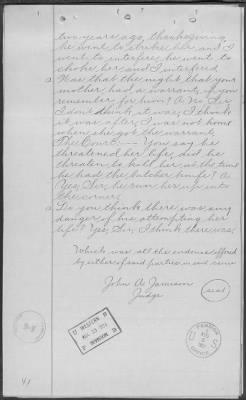 two years ago, thanksgiving
he went to strike her and I
went to interfere, he went to
choke her and I interfered
Q Was that the night that your
mother had a warrant if you
remember for him? A. No Sir
I dont think it was, I think
it was after, I was not home
when she got the warrant.
The Court:-- You say he
threatened her life, did he
threaten to kill her at the time
he had the butcher knife? A
Yes, Sir, he run her up into
the corner.
Q Do you think there was any
danger of his attempting her
life? Yes, Sir, I think there was.
Which was all the evidence offered
by either of said parties in said cause
John A. Jamison
Judge
Seal
U.S. PENSION
OFFICE
WESTERN
DIVISION
41